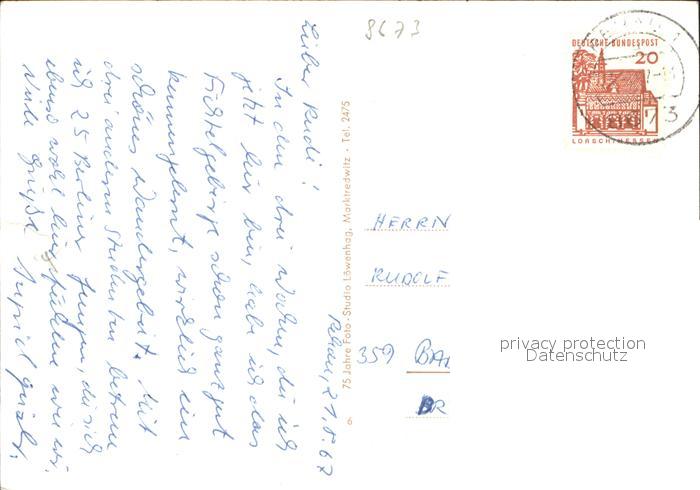 8673
Rehau, 21.8.67
Lieber Rudi!
In den drei Wochen, die ich
jetzt hier bin, habe ich das
Fichtelgebirge schon ganz gut
kennengelernt, wirklich ein
schönes Wandergebiet. Mit
drei anderen Studenten betreue
ich 25 Berliner Jungen, die sich
ebenso wohl hier fühlen wie wir.
Viele Grüße
75 Jahre Foto-Studio Löwenhag, Marktredwitz · Tel. 2475
DEUTSCHE BUNDESPOST
20
LORSCH/HESSEN
HERRN
RUDOLF
359 BA
DR
privacy protection
Datenschutz